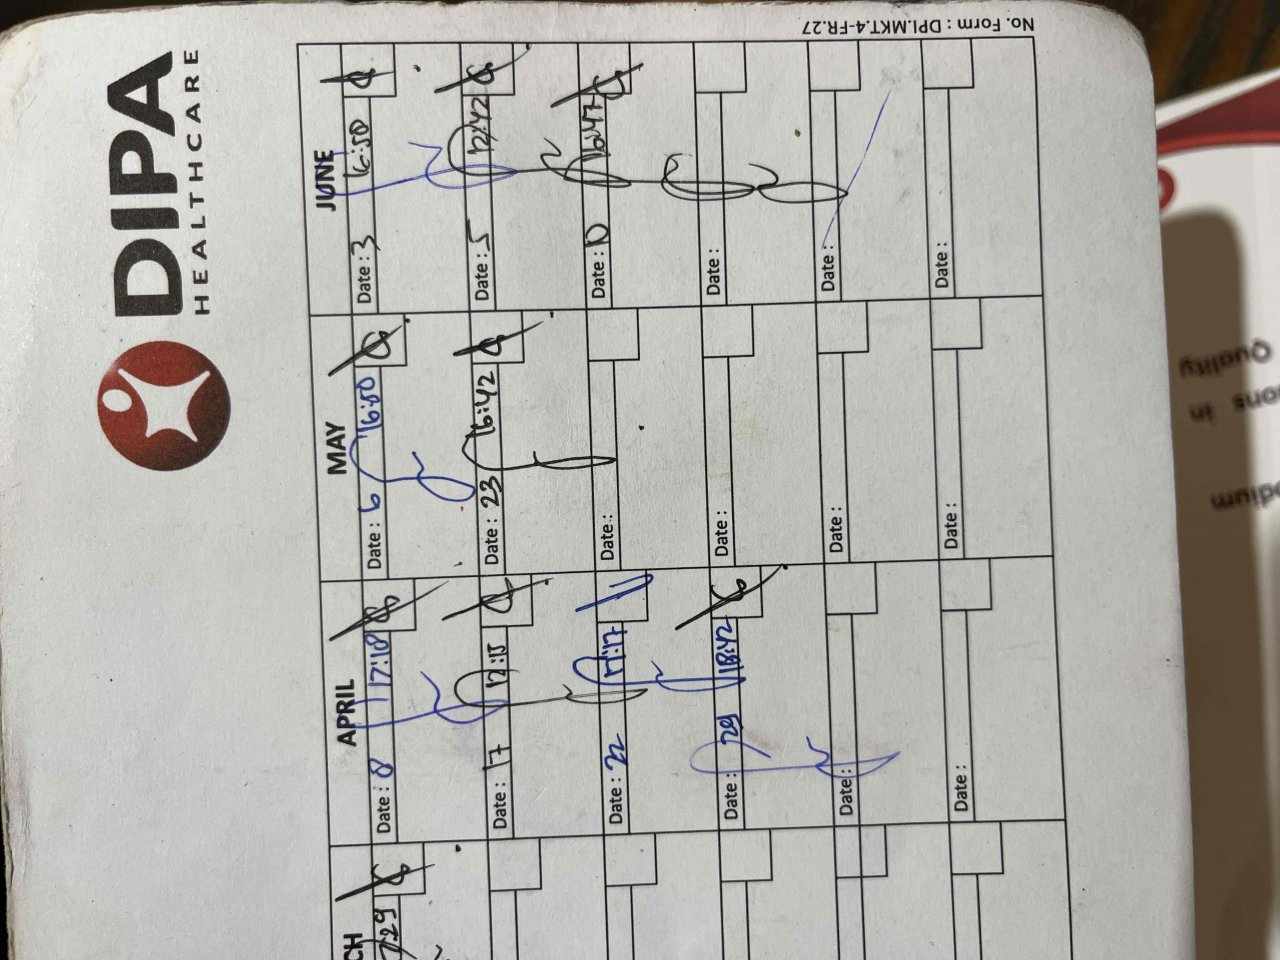 DIPA
HEALTHCARE
No. Form : DPI.MKT.4-FR.27
CH
APRIL
MAY
JUNE
Date : 8 17:18
Date : 6 16:50
Date : 3 16:50
Date : 17 12:15
Date : 23 16:42
Date : 5 12:42
Date : 22 17:17
Date :
Date : 10 16:47
Date : 29 18:42
Date :
Date :
Date :
Date :
Date :
Date :
Date :
Date :
Quality
in